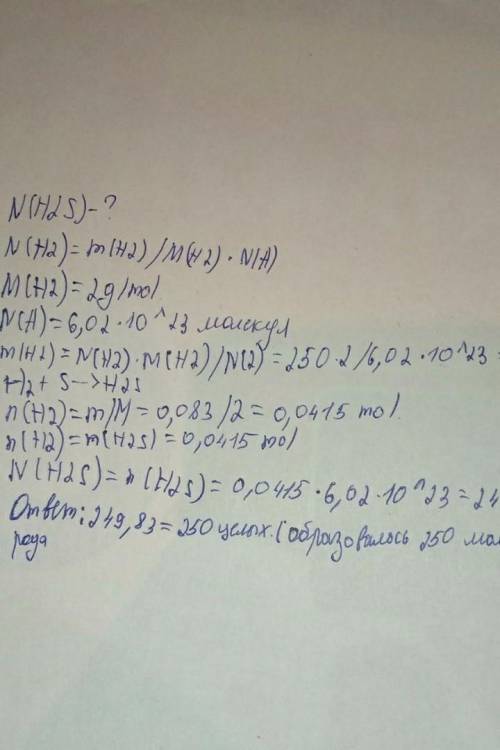 N(H2S)-?
N(H2)=m(H2)/M(H2)·N(A)
M(H2)=2g/mol
N(A)=6,02·10^23 молекул
m(H2)=N(H2)·M(H2)/N(2)=250·2/6,02·10^23=
H2+S-->H2S
n(H2)=m/M=0,083/2=0,0415 mol
n(H2)=n(H2S)=0,0415 mol
N(H2S)=n(H2S)=0,0415·6,02·10^23=24
Ответ: 249,83=250 целых. (образовалось 250 мол
рода